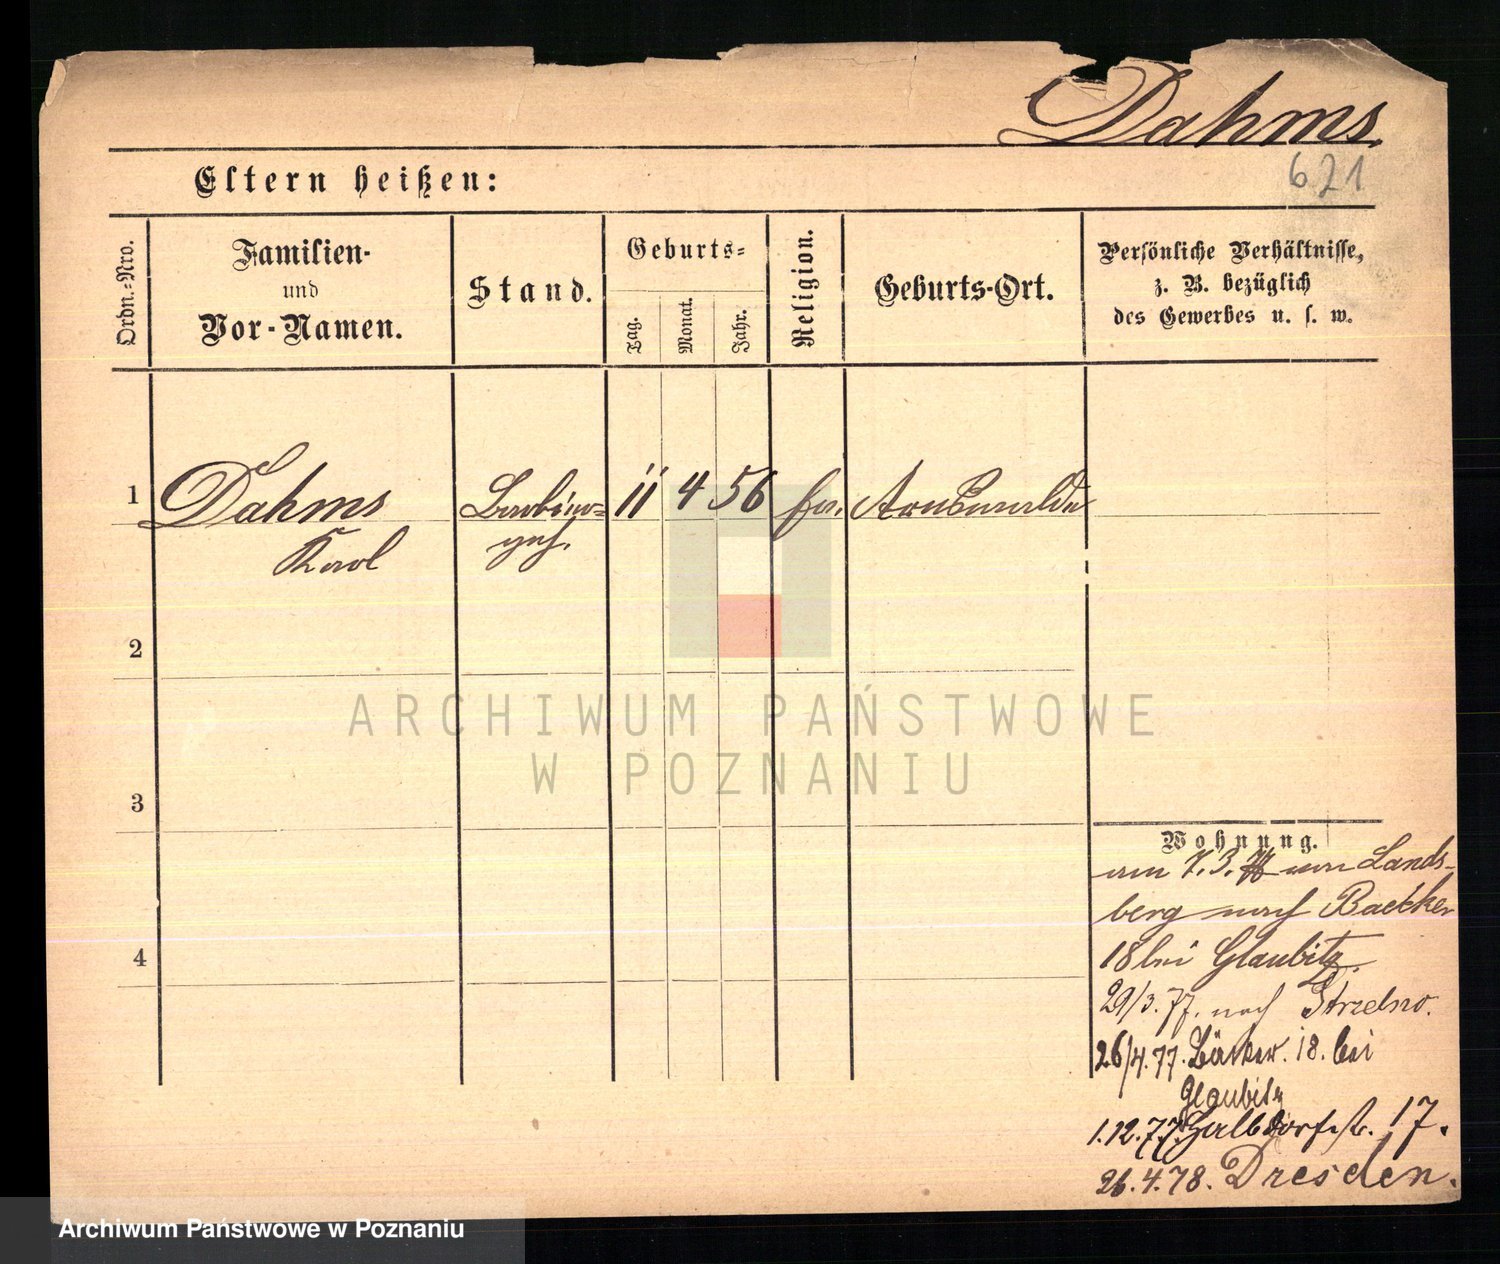 Dahms.
621
Eltern heißen:
Ordn.-Nro.
Familien-
und
Vor-Namen.
Stand.
Geburts-
Tag.
Monat.
Jahr.
Religion.
Geburts-Ort.
Persönliche Verhältnisse,
z. B. bezüglich
des Gewerbes u. s. w.
1
Dahms
Karl
Barbier-
geh.
11
4
56
ev.
Arnswalde
2
3
4
Wohnung.
am 7.3. von Lands-
berg nach Baecker
18 bei Glaubitz.
29/3.77. nach Strzelno.
26/4.77. Bäcker. 18. bei
Glaubitz
1.12.77. Halbdorfstr. 17.
26.4.78. Dresden.
ARCHIWUM PAŃSTWOWE
W POZNANIU
Archiwum Państwowe w Poznaniu